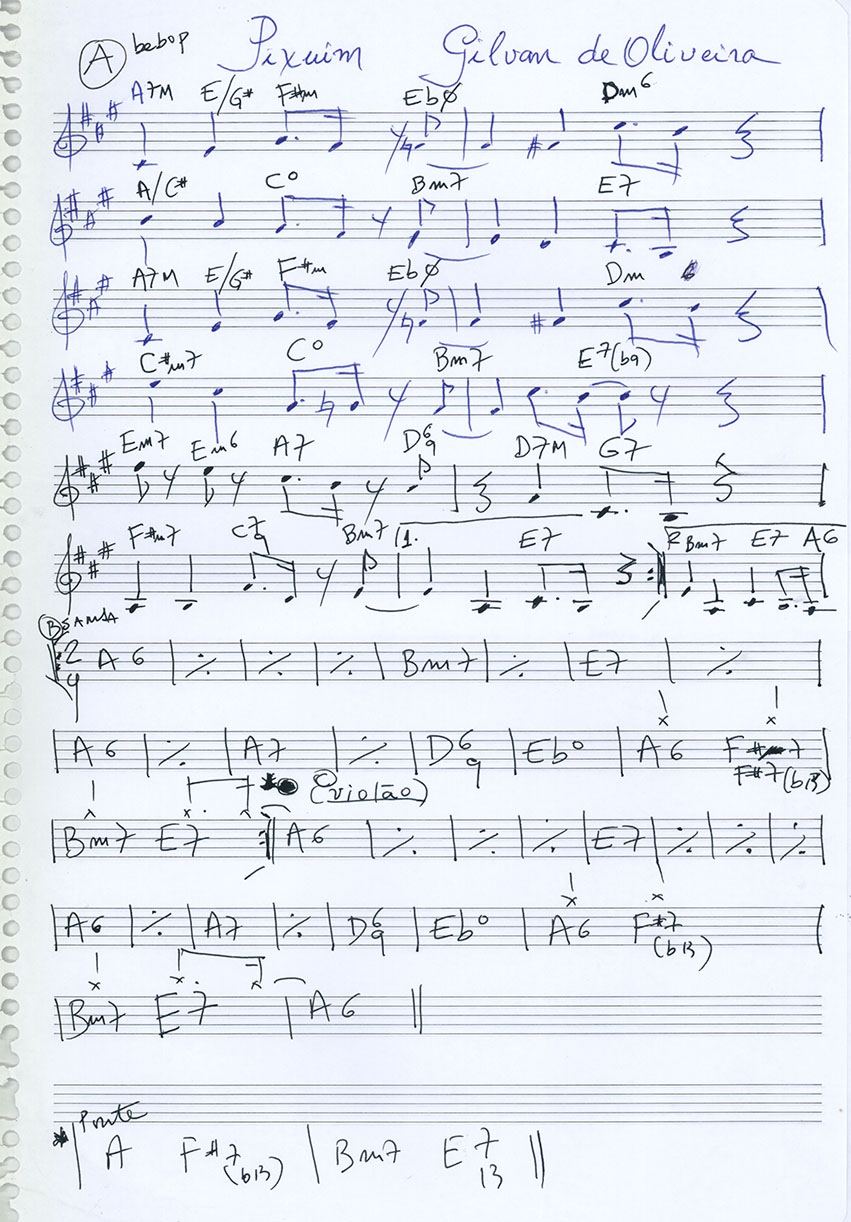 A bebop Pixuim Gilvan de Oliveira
A7M E/G# F#m Ebø Dm6
A/C# C° Bm7 E7
A7M E/G# F#m Ebø Dm 6
C#m7 C° Bm7 E7(b9)
Em7 Em6 A7 D6/9 D7M G7
F#m7 C7/9 Bm7 1. E7 2 Bm7 E7 A6
B SAMBA
2/4 A6 | ٪ | ٪ | ٪ | Bm7 | ٪ | E7 | ٪ |
| A6 | ٪ | A7 | ٪ | D6/9 | Eb° | A6 F#7(b13) |
(violão)
| Bm7 E7 :|| A6 | ٪ | ٪ | ٪ | E7 | ٪ | ٪ | ٪ |
| A6 | ٪ | A7 | ٪ | D6/9 | Eb° | A6 F#7(b13) |
| Bm7 E7 | A6 ||
* Ponte
| A F#7(b13) | Bm7 E7 13 ||